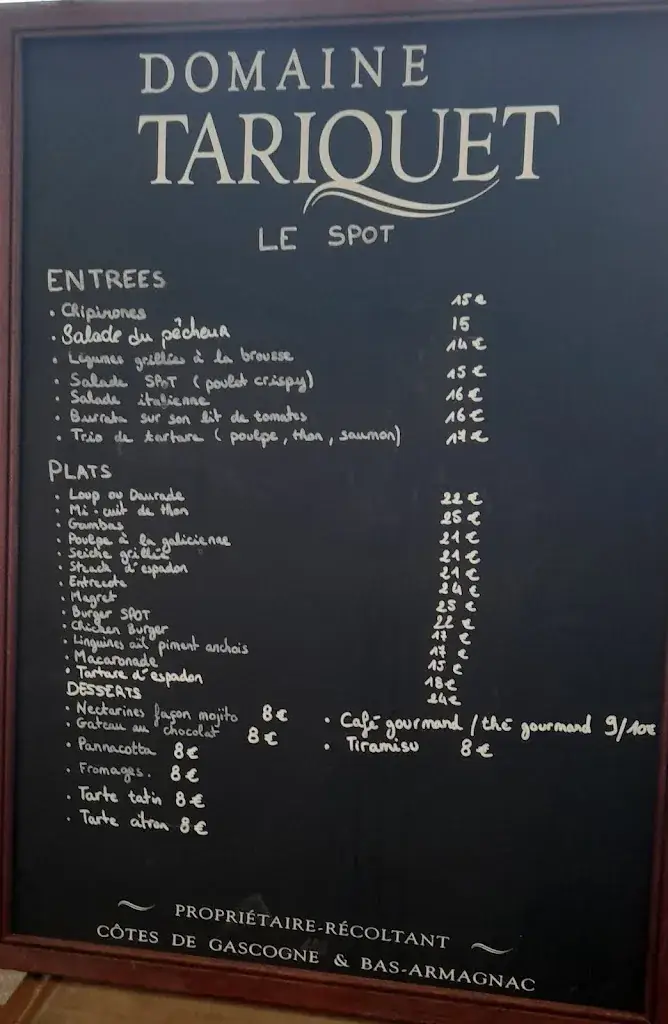 DOMAINE
TARIQUET
LE SPOT
ENTREES
• Chipirones 15€
• Salade du pêcheur 15
• Légumes grillés à la brousse 14€
• Salade SPOT (poulet crispy) 15€
• Salade italienne 16€
• Burrata sur son lit de tomates 16€
• Trio de tartare (poulpe, thon, saumon) 17€
PLATS
• Loup ou Daurade 22€
• Mi-cuit de thon 25€
• Gambas 21€
• Poulpe à la galicienne 21€
• Seiche grillée 21€
• Steack d'espadon 24€
• Entrecote 25€
• Magret 22€
• Burger SPOT 17€
• Chicken Burger 17€
• Linguines ail piment anchois 15€
• Macaronade 18€
• Tartare d'espadon 24€
DESSERTS
• Nectarines façon mojito 8€
• Gateau au chocolat 8€
• Pannacotta 8€
• Fromages. 8€
• Tarte tatin 8€
• Tarte citron 8€
• Café gourmand / thé gourmand 9/10€
• Tiramisu 8€
PROPRIÉTAIRE-RÉCOLTANT
CÔTES DE GASCOGNE & BAS-ARMAGNAC